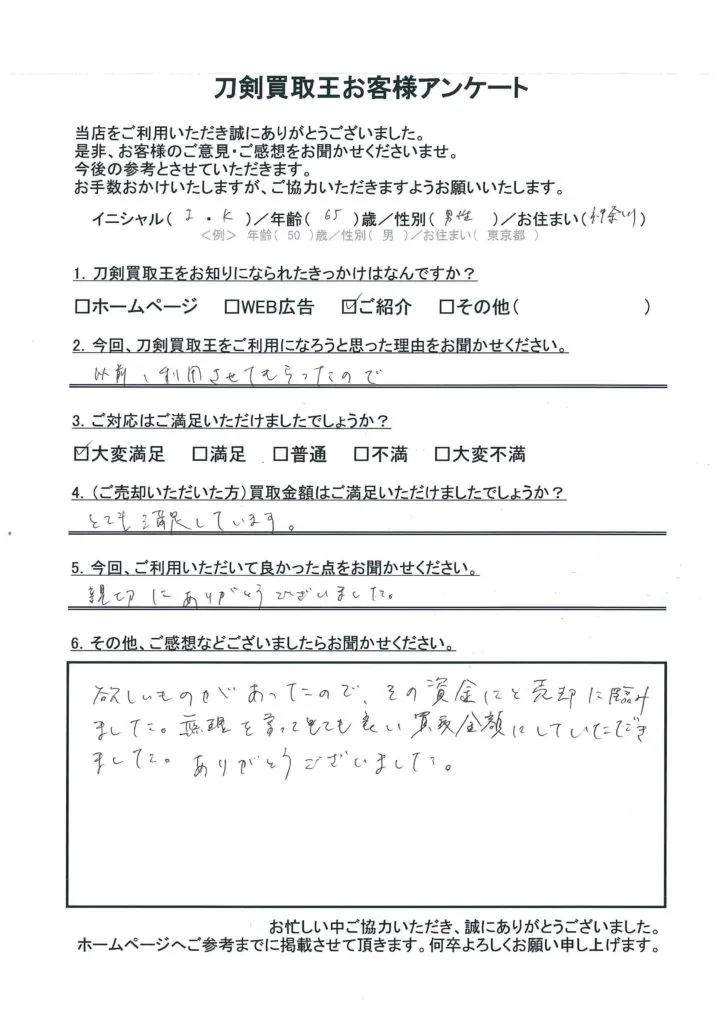 刀剣買取王お客様アンケート
当店をご利用いただき誠にありがとうございました。
是非、お客様のご意見・ご感想をお聞かせくださいませ。
今後の参考とさせていただきます。
お手数おかけいたしますが、ご協力いただきますようお願いいたします。
イニシャル( I ・ K )／年齢( 65 )歳／性別( 男性 )／お住まい(神奈川)
＜例＞ 年齢( 50 )歳／性別( 男 )／お住まい( 東京都 )
1. 刀剣買取王をお知りになられたきっかけはなんですか？
□ホームページ □WEB広告 ☑ご紹介 □その他( )
2. 今回、刀剣買取王をご利用になろうと思った理由をお聞かせください。
以前、利用させてもらったので
3. ご対応はご満足いただけましたでしょうか？
☑大変満足 □満足 □普通 □不満 □大変不満
4. （ご売却いただいた方）買取金額はご満足いただけましたでしょうか？
とても満足しています。
5. 今回、ご利用いただいて良かった点をお聞かせください。
親切にありがとうございました。
6. その他、ご感想などございましたらお聞かせください。
欲しいものがあったので、その資金にと売却に臨み
ました。無理を言ってとても良い買取金額にしていただき
ました。ありがとうございました。
お忙しい中ご協力いただき、誠にありがとうございました。
ホームページへご参考までに掲載させて頂きます。何卒よろしくお願い申し上げます。